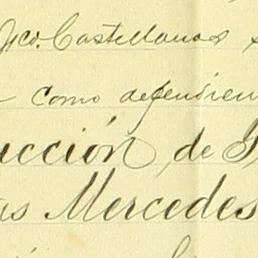 Fco. Castellanos
como defendien
ucción, de G
as Mercedes